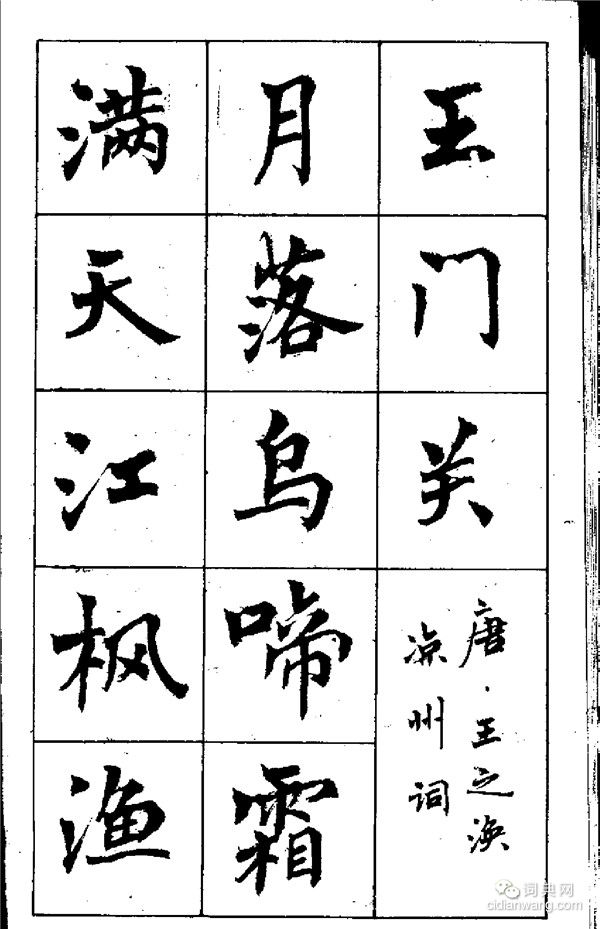 玉门关
唐·王之涣
凉州词
月落乌啼霜
满天江枫渔
词典网
cidianwang.com